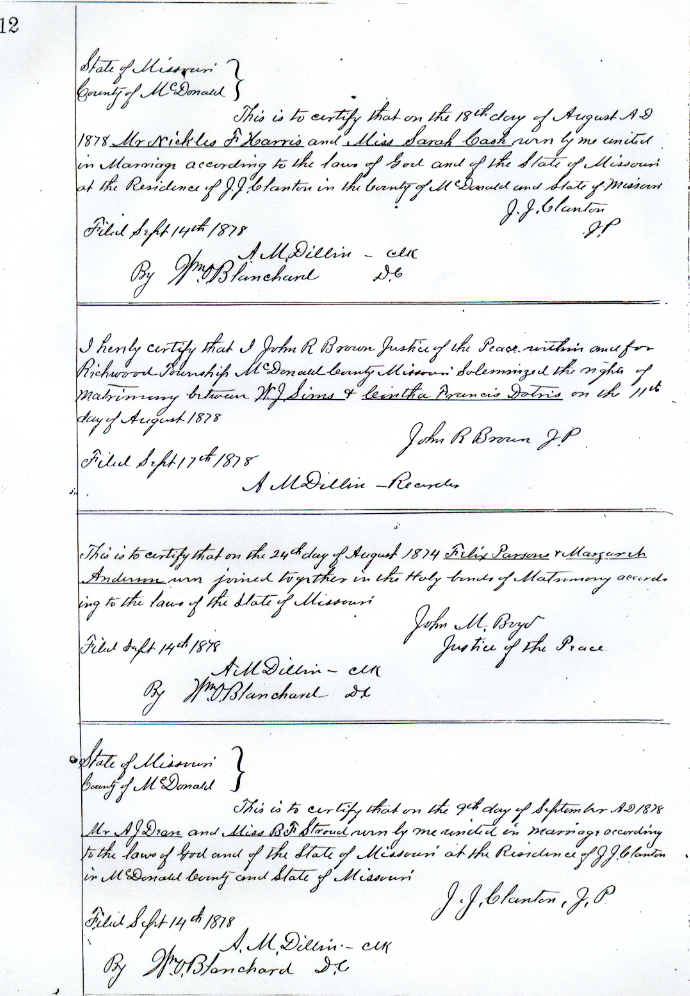 12
State of Missouri }
County of McDonald
This is to certify that on the 18th day of August AD
1878 Mr Nickles F Harris and Miss Sarah Cash wern by me united
in Marriage according to the laws of God and of the State of Missouri
at the Residence of J.J. Clanton in the County of McDonald and State of Missouri
J. J. Clanton
J.P
Filed Sept 14th 1878
A. M. Dillin - clk
By Wm O Blanchard D.C
I herby certify that I John R Brown Justice of the Peace within and for
Richwood Township McDonald County Missouri Solemnized the rights of
Matrimony between W J Sims & Cintha Francis on the 11th
day of August 1878
John R Brown J P
Filed Sept 17th 1878
A M Dillin - Recorder
This is to certify that on the 24th day of August 1874 Felix Parsons & Margaret
Anderson wern joined together in the Holy bonds of Matrimony accord
ing to the laws of the State of Missouri
John M. Boyd
Justice of the Peace
Filed Sept 14th 1878
A. M Dillin - clk
By Wm O Blanchard D.C
State of Missouri }
County of McDonald
This is to certify that on the 9th day of September AD 1878
Mr A J and Miss B F Stroud wern by me united in marriage according
to the laws of God and of the State of Missouri at the Residence of J J Clanton
in McDonald County and State of Missouri
J. J. Clanton, J. P.
Filed Sept 14th 1878
A. M. Dillin - clk
By Wm O. Blanchard D.C